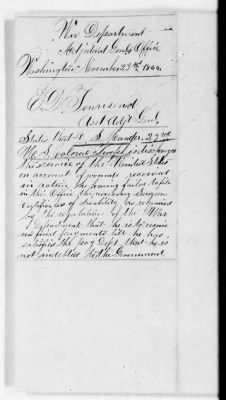 War Department
Adjutant Genl's Office
Washington November 23rd 1864.
E. D. Townsend
Asst Adjt Genl
States that C. B. 2 yrd
U.S. colored Troops is discharged
the service of the United States
on account of wounds received
in action, he having failed to file
in this Office the necessary Surgeon
Certificates of disability, as required
by the regulation of the War
Department that he is to receive
no final payments till he has
satisfied the Pay Dept that he is
not indebted to the Government